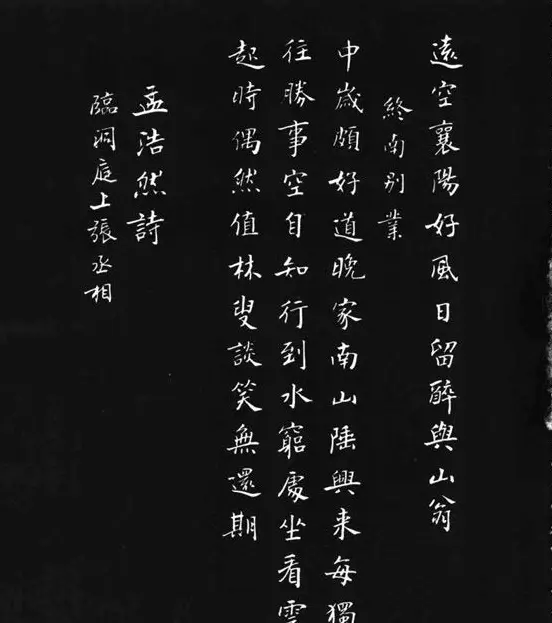 遠空襄陽好風日留醉與山翁
終南别業
中歲頗好道晚家南山陲興来每獨
往勝事空自知行到水窮處坐看雲
起時偶然值林叟談笑無還期
孟浩然詩
臨洞庭上張丞相